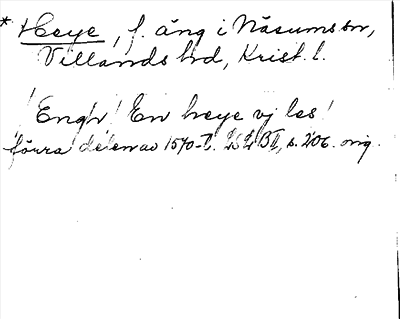 * Heye, f. äng i Näsums sn,
Villands hd, Krist. l.
"Engh! En heye vj les!
förra delen av 1570-t. LSLBII, s. 206. orig.